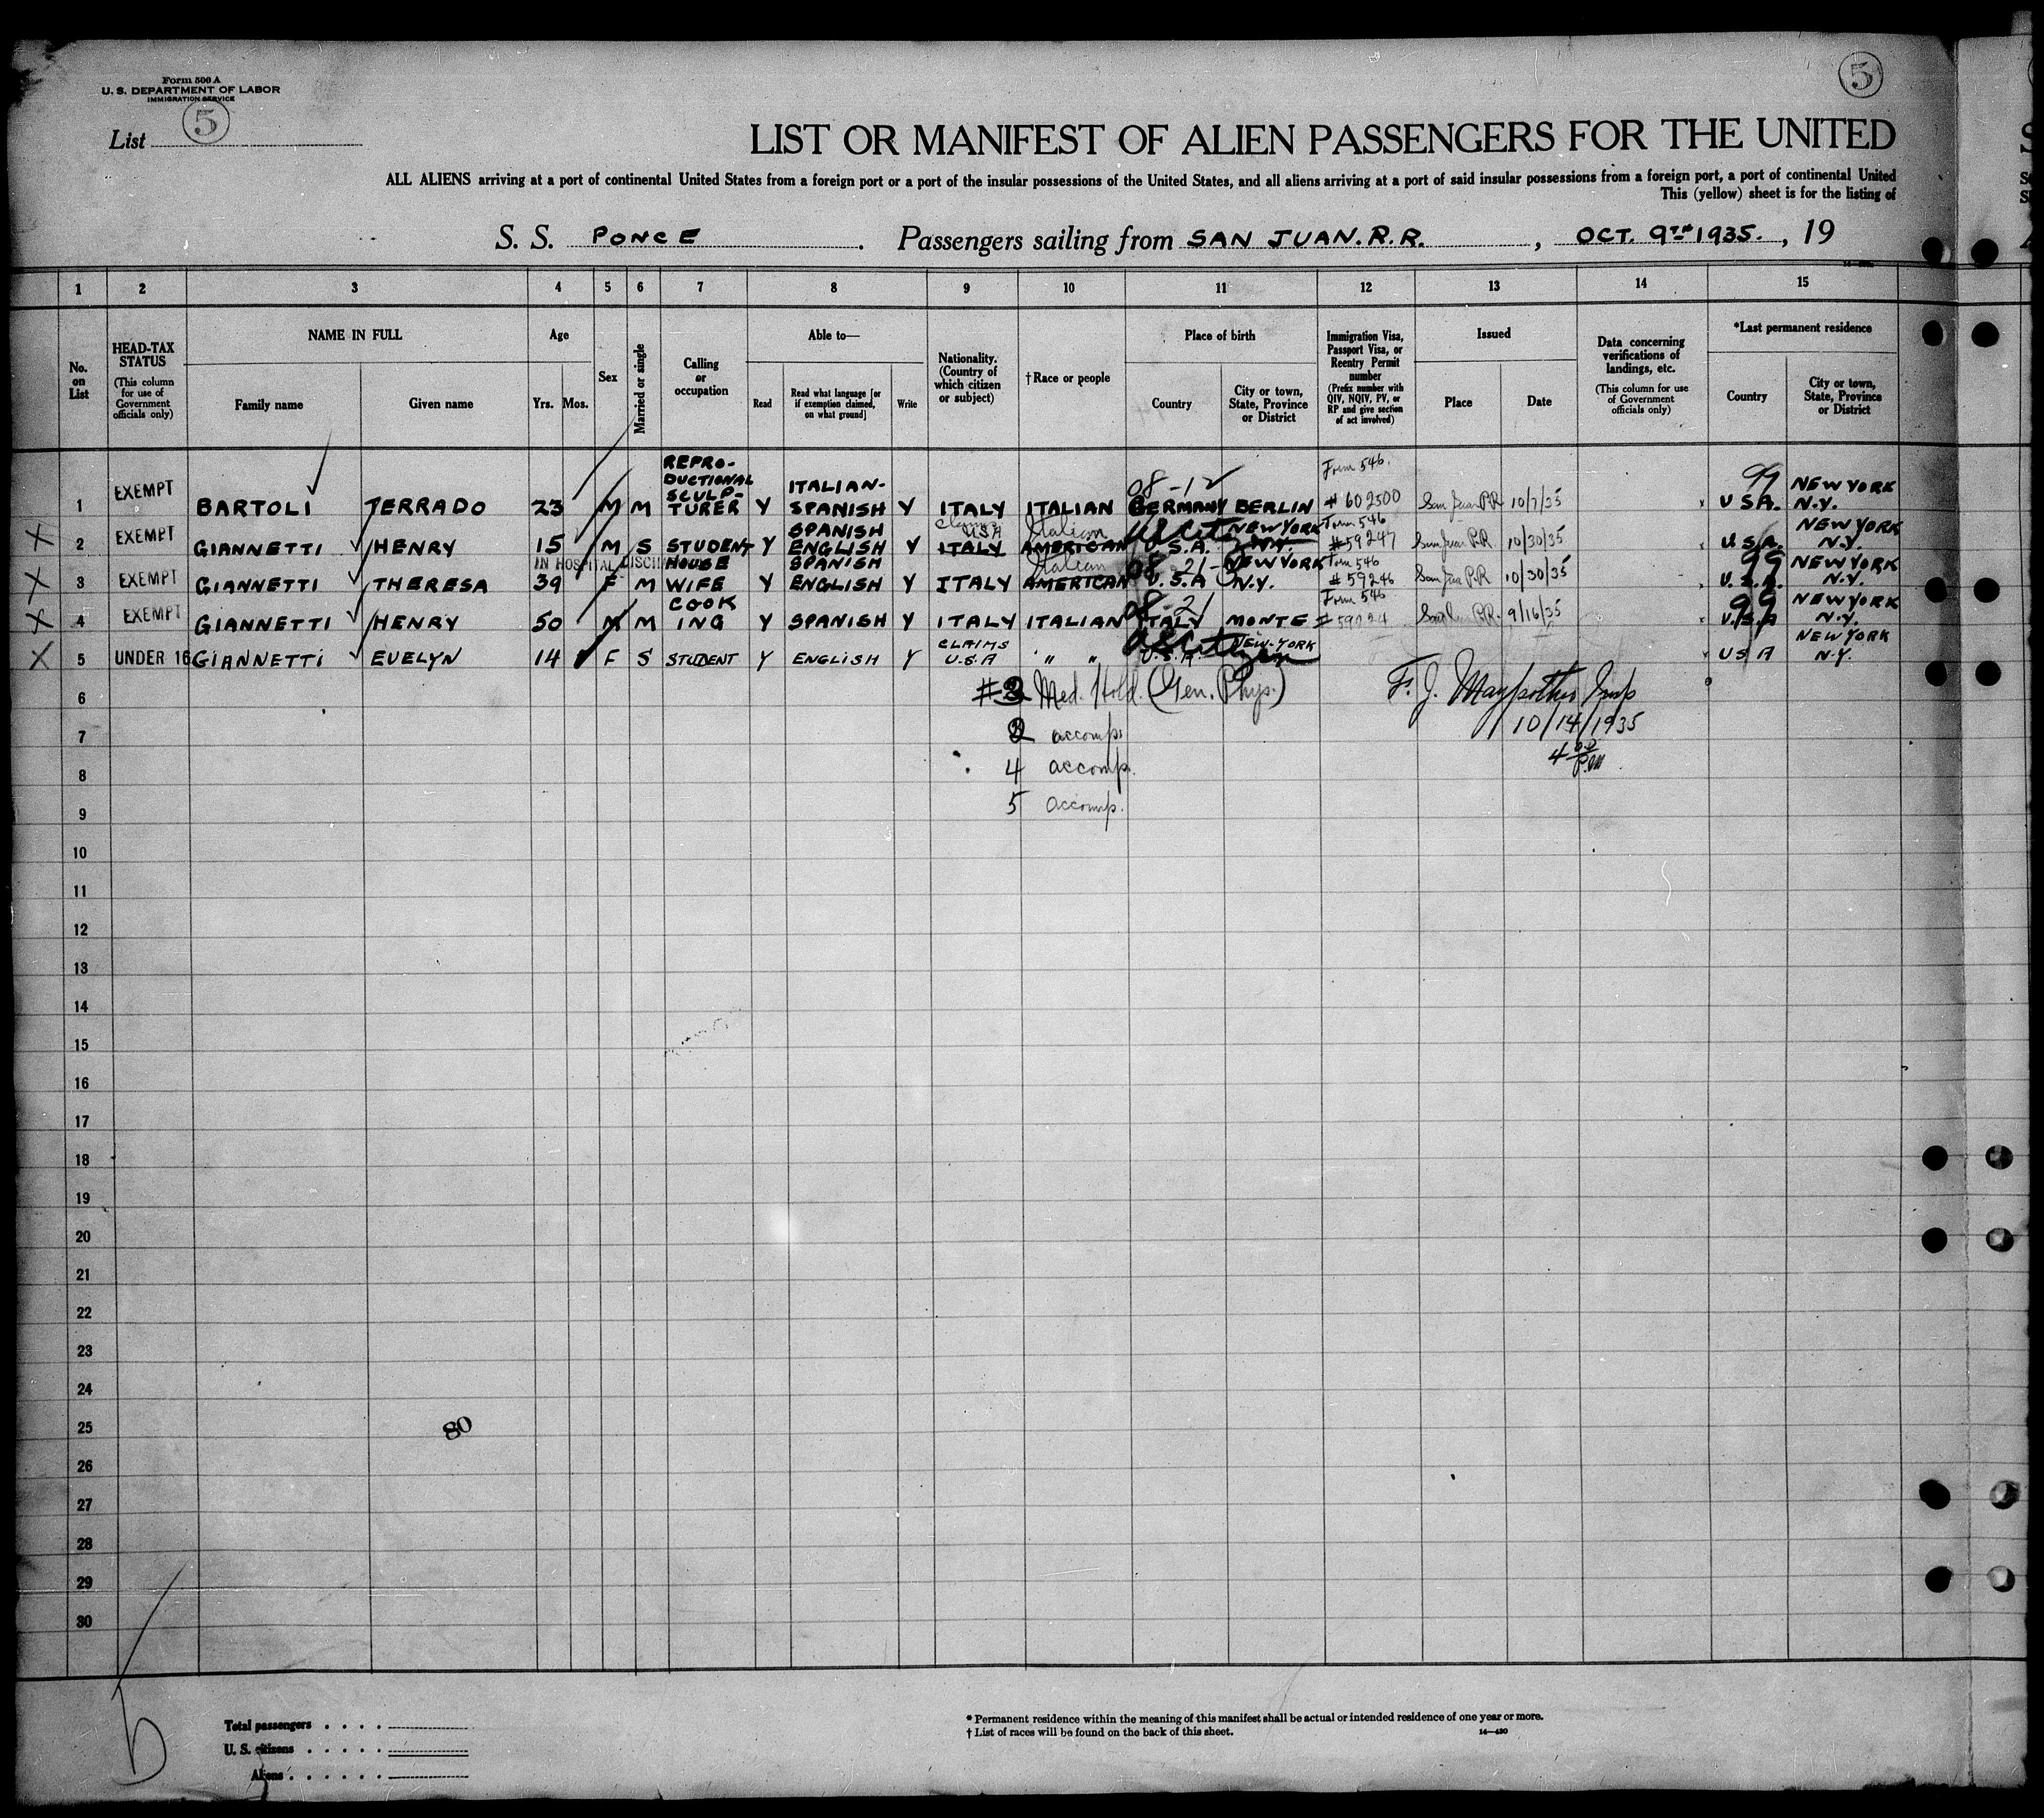 Form 500 A
U. S. DEPARTMENT OF LABOR
IMMIGRATION SERVICE
5
5
List
LIST OR MANIFEST OF ALIEN PASSENGERS FOR THE UNITED
ALL ALIENS arriving at a port of continental United States from a foreign port or a port of the insular possessions of the United States, and all aliens arriving at a port of said insular possessions from a foreign port, a port of continental United
This (yellow) sheet is for the listing of
S. S. PONCE. Passengers sailing from SAN JUAN. P.R., OCT. 9TH 1935., 19
1 2 3 4 5 6 7 8 9 10 11 12 13 14 15
No. on List
HEAD-TAX STATUS (This column for use of Government officials only)
NAME IN FULL
Family name Given name
Age
Yrs. Mos.
Sex
Married or single
Calling or occupation
Able to—
Read Read what language [or if exemption claimed, on what ground] Write
Nationality. (Country of which citizen or subject)
† Race or people
Place of birth
Country City or town, State, Province or District
Immigration Visa, Passport Visa, or Reentry Permit number (Prefix number with QIV, NQIV, PV, or RP and give section of act involved)
Issued
Place Date
Data concerning verifications of landings, etc. (This column for use of Government officials only)
*Last permanent residence
Country City or town, State, Province or District
1 EXEMPT BARTOLI TERRADO 23 M M REPRO-DUCTIONAL SCULP-TURER Y ITALIAN-SPANISH Y ITALY ITALIAN 08-12 GERMANY BERLIN Form 546. # 602500 San Juan P.R. 10/7/35 99 U S A. NEW YORK N.Y.
X 2 EXEMPT GIANNETTI HENRY 15 M S STUDENT Y SPANISH ENGLISH Y Claims USA ITALY Italian AMERICAN US Citizen U.S.A. NEW YORK N.Y. Form 546 # 59247 San Juan P.R. 10/30/35 U S A. NEW YORK N.Y.
IN HOSPITAL DISCH
X 3 EXEMPT GIANNETTI THERESA 39 F M HOUSE WIFE Y SPANISH ENGLISH Y ITALY Italian AMERICAN 08-21- U.S.A NEW YORK N.Y. Form 546 # 59246 San Juan P.R. 10/30/35 99 U.S.A. NEW YORK N.Y.
X 4 EXEMPT GIANNETTI HENRY 50 M M COOK ING Y SPANISH Y ITALY ITALIAN 08-21 ITALY MONTE Form 546 # San Juan P.R. 9/16/35 99 U.S.A NEW YORK N.Y.
X 5 UNDER 16 GIANNETTI EVELYN 14 F S STUDENT Y ENGLISH Y CLAIMS U.S.A " " US Citizen U.S.A. NEW-YORK U S A NEW YORK N.Y.
6 #3 Med. Hold. (Gen. Phys.) F. J. Insp
7 2 accomp. 10/14/1935
8 4 accomp. 4 00 P.M
9 5 accomp.
10
11
12
13
14
15
16
17
18
19
20
21
22
23
24
25
80
26
27
28
29
30
Total passengers . . . .
U. S. citizens . . . . .
Aliens . . . . . .
* Permanent residence within the meaning of this manifest shall be actual or intended residence of one year or more.
† List of races will be found on the back of this sheet.
14—430